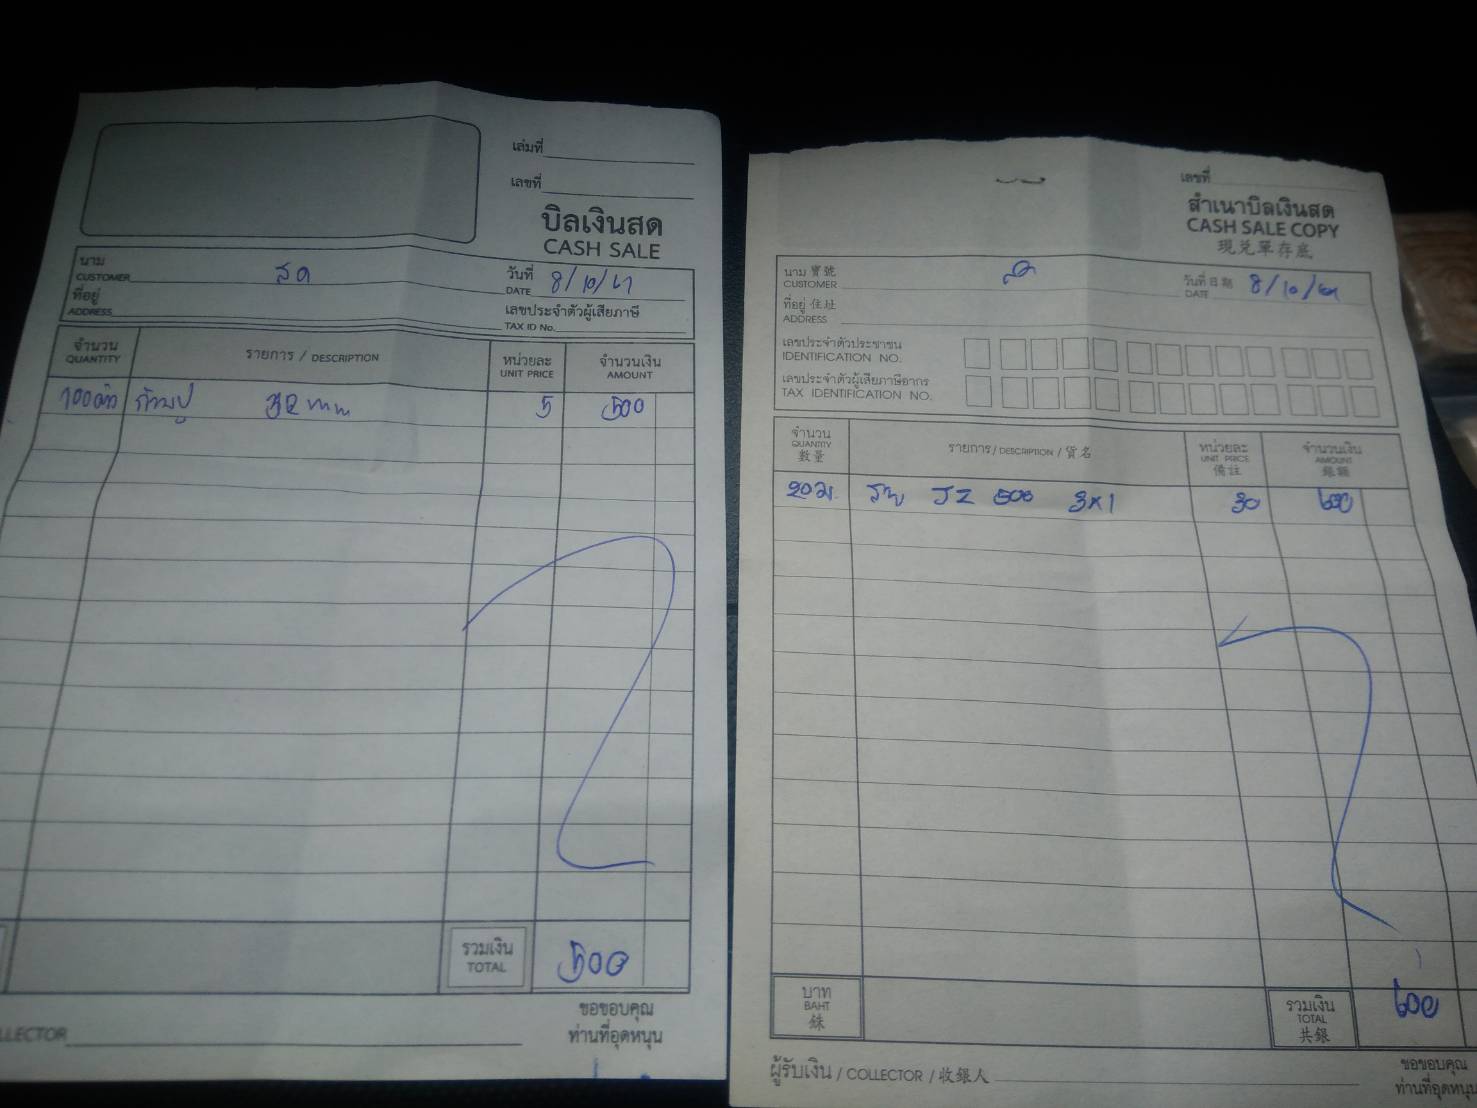 เล่มที่
เลขที่
บิลเงินสด
CASH SALE
นาม
CUSTOMER
สด
วันที่
DATE 8/10/67
ที่อยู่
ADDRESS
เลขประจำตัวผู้เสียภาษี
TAX ID No.
จำนวน
QUANTITY
รายการ / DESCRIPTION
หน่วยละ
UNIT PRICE
จำนวนเงิน
AMOUNT
100ตัว ก้ามปู 32 mm 5 500
รวมเงิน
TOTAL
500
ขอขอบคุณ
ท่านที่อุดหนุน
LLECTOR
เลขที่
สำเนาบิลเงินสด
CASH SALE COPY
現兌單存底
นาม 寶號
CUSTOMER
สด
วันที่ 日期
DATE 8/10/67
ที่อยู่ 住址
ADDRESS
เลขประจำตัวประชาชน
IDENTIFICATION NO.
เลขประจำตัวผู้เสียภาษีอากร
TAX IDENTIFICATION NO.
จำนวน
QUANTITY
數量
รายการ / DESCRIPTION / 貨名
หน่วยละ
UNIT PRICE
備註
จำนวนเงิน
AMOUNT
銀額
20ม. JZ 500 3x1 30 600
บาท
BAHT
銖
รวมเงิน
TOTAL
共銀
600
ผู้รับเงิน / COLLECTOR / 收銀人
ขอขอบคุณ
ท่านที่อุดหนุน